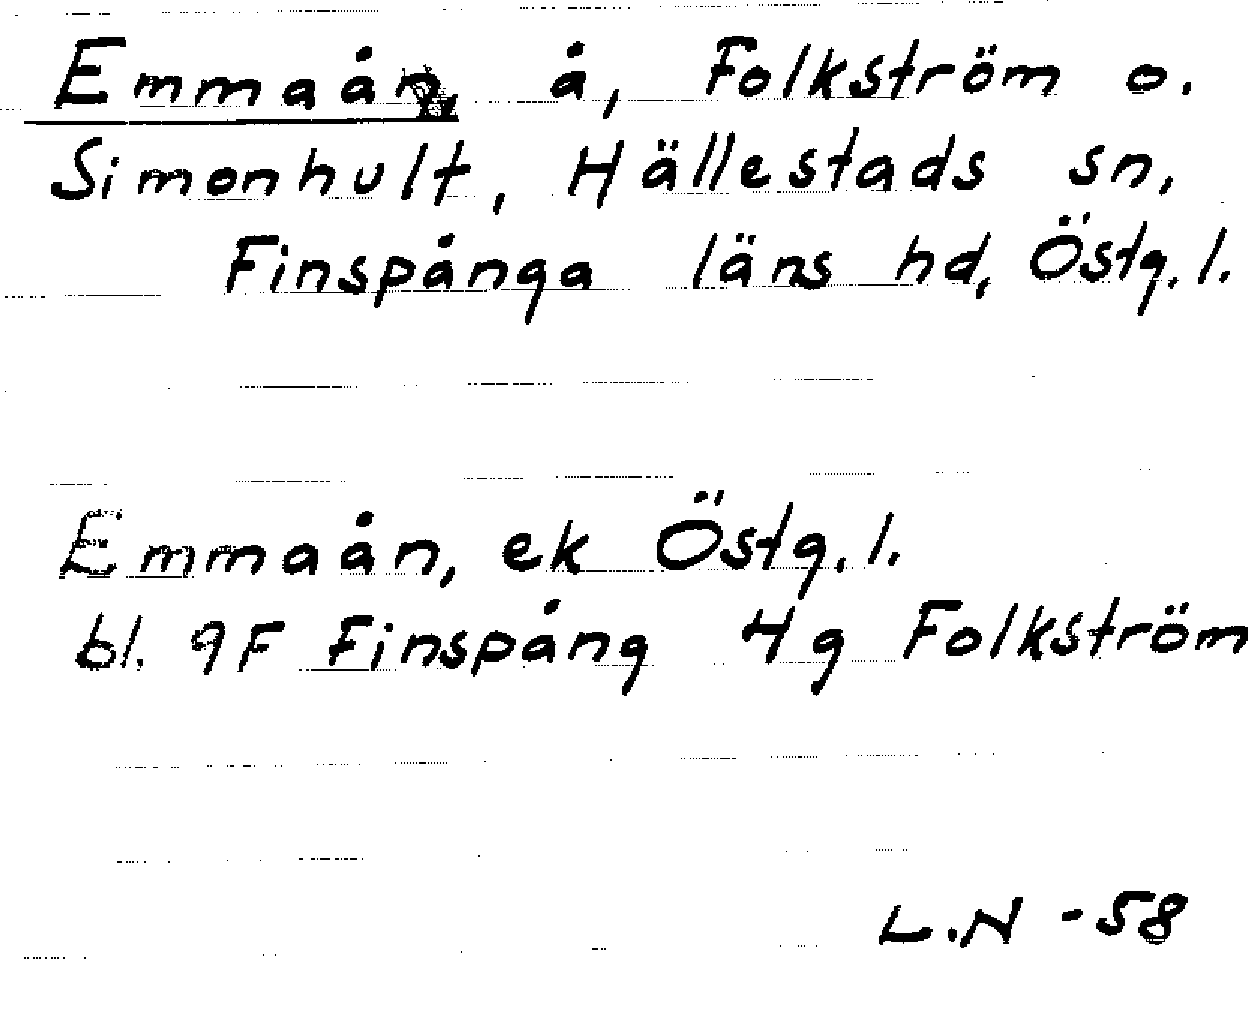 Emmaån, å, Folkström o.
Simonhult, Hällestads sn,
Finspånga läns hd, Östg. l.
Emmaån, ek Östg. l.
bl. 9F Finspång 4g Folkström
L.N -58